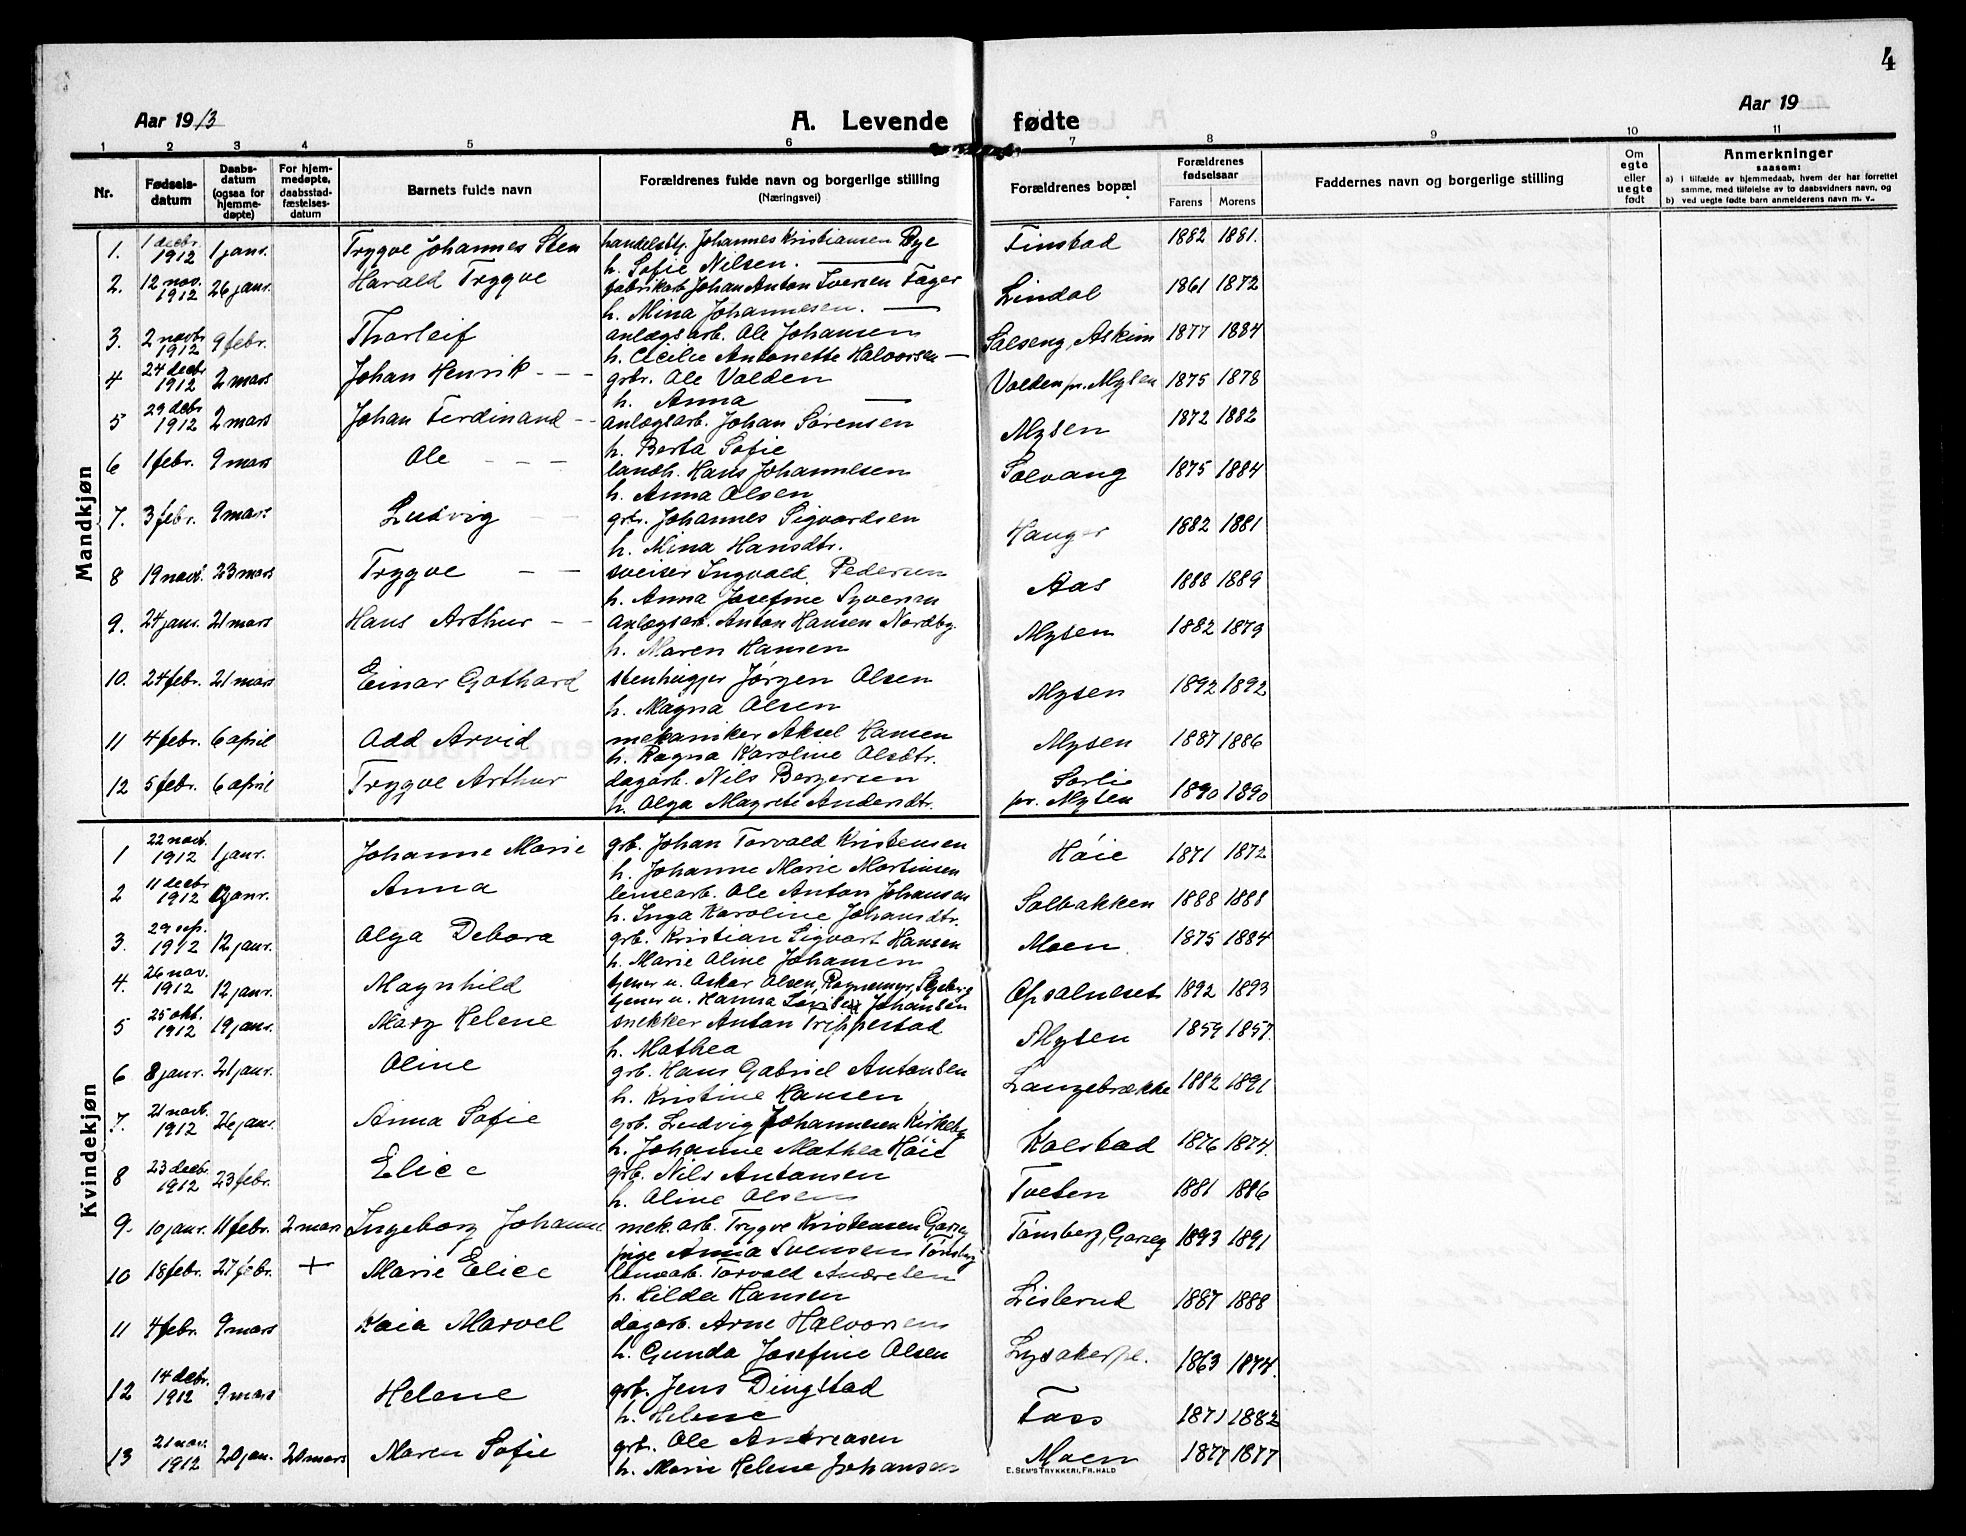 4
Aar 1913
A. Levende fødte
Aar 19
1 2 3 4 5 6 7 8 9 10 11
Nr.
Fødsels-
datum
Daabs-
datum
(ogsaa for
hjemme-
døpte)
For hjem-
medøpte,
daabsstad-
fæstelses-
datum
Barnets fulde navn
Forældrenes fulde navn og borgerlige stilling
(Næringsvei)
Forældrenes bopæl
Forældrenes
fødselsaar
Farens Morens
Faddernes navn og borgerlige stilling
Om
egte
eller
uegte
født
Anmerkninger
saasom:
a) i tilfælde av hjemmedaab, hvem der har forrettet
samme, med tilføielse av to daabsvidners navn, og
b) ved uegte fødte barn anmelderens navn m. v.
Mandkjøn
1. 1 decbr. 1912 1 janr. Trygve Johannes Sten handelsbtj. Johannes Kristiansen Bye Finstad 1882 1881.
h. Sofie Nilsen.
2. 12 nov. 1912 26 janr. Harald Trygve fabrikarb. Johan Anton Iversen Fager Lindal 1861 1872
h. Mina Johannesen.
3. 2 novbr. 1912 9 febr. Thorleif anlægsarb. Ole Johansen Solseng, Askim 1877 1884
h. Cecilie Antonette Halvorsen
4 24 decbr. 1912 2 mars Johan Henrik grbr. Ole Volden Volden pr. Mysen 1875 1878
h. Anna
5 29 debr. 1912 2 mars Johan Ferdinand anlægsarb. Johan Sørensen Mysen 1872 1882
h. Berta Sofie
6 1 febr. 9 mars Ole landh. Hans Johannesen Solvang 1875 1884
h. Anna Olsen
7. 3 febr. 9 mars Ludvig grbr. Johannes Sigvardsen Hauger 1882 1881
h. Mina Hansdtr.
8 19 novbr. 23 mars Trygve sveiser Ingvald Pedersen Aas 1888 1889
h. Anna Josefine Syversen
9. 24 janr. 21 mars Hans Arthur anlægsarb. Anton Hansen Nordby. Mysen 1882 1879
h. Maren Hansen
10. 24 febr. 21 mars Einar Gothard stenhugger Jørgen Olsen Mysen 1892 1892
h. Magna Olsen
11 4 febr. 6 april Odd Arvid mekaniker Aksel Hansen Mysen 1887 1886
h. Ragna Karoline Olsdtr.
12 5 febr. 6 april Trygve Arthur dagarb. Nils Bergersen Sorlie 1890 1890
h. Olga Magrete Andersdtr. pr. Mysen
Kvindekjøn
1 22 novb. 1912 1 janr. Johanne Marie grb. Johan Torvald Kristensen Høie 1871 1872
h. Johanne Marie Martinsen
2 11 decbr. 1912 janr. Anna lensearb. Ole Anton Johansen Solbakken 1888 1888
h. Inga Karoline Johansdtr.
3. 29 sep. 1912 12 janr. Olga Debora grb. Kristian Sigvart Hansen Moen 1875 1884
h. Marie Aline Johansen
4. 26 nov. 1912 12 janr. Magnhild tjener u. Oskar Olsen, Opsalneset 1892 1893
tjener u. Hanna Johansen
5 25 okt. 1912 19 janr. Mary Helene snekker Anton Trippestad Mysen 1859 1857.
h. Mathea
6 8 janr. 21 janr. Aline grb. Hans Gabriel Antonsen Langebrække 1882 1891
h. Kristine Hansen
7. 21 novb. 1912 26 janr. Anna Sofie grb. Ludvig Johannesen Kirkeby Kolstad 1876 1874.
h. Johanne Mathea Høie
8 23 decbr. 1912 23 febr. Elise grb. Nils Antonsen Tveten 1881 1886
h. Aline Olsen
9. 10 janr. 11 febr. 2 mars Ingeborg Johanne mek. arb. Trygve Kristensen Tønsberg, 1893 1891
pige Anna Svensen Tønsberg
10 18 febr. 27 febr. + Marie Elise lensearb. Torvald Andresen Lislerud 1887 1888
h. Hilda Hansen
11 4 febr. 9 mars Kaia Marvel dagarb. Arne Halvorsen Lysakerpl. 1863 1874.
h. Gunda Josefine Olsen
12 14 debr. 1912 9 mars Helene grb. Jens Dingstad Foss 1871 1882
h. Helene
13 21 nov. 1912 20 jan. 20 mars Maren Sofie grb. Ole Andreasen Moen 1877 1877
h. Marie Helene Johansen
E. SEM'S TRYKKERI, FR.HALD